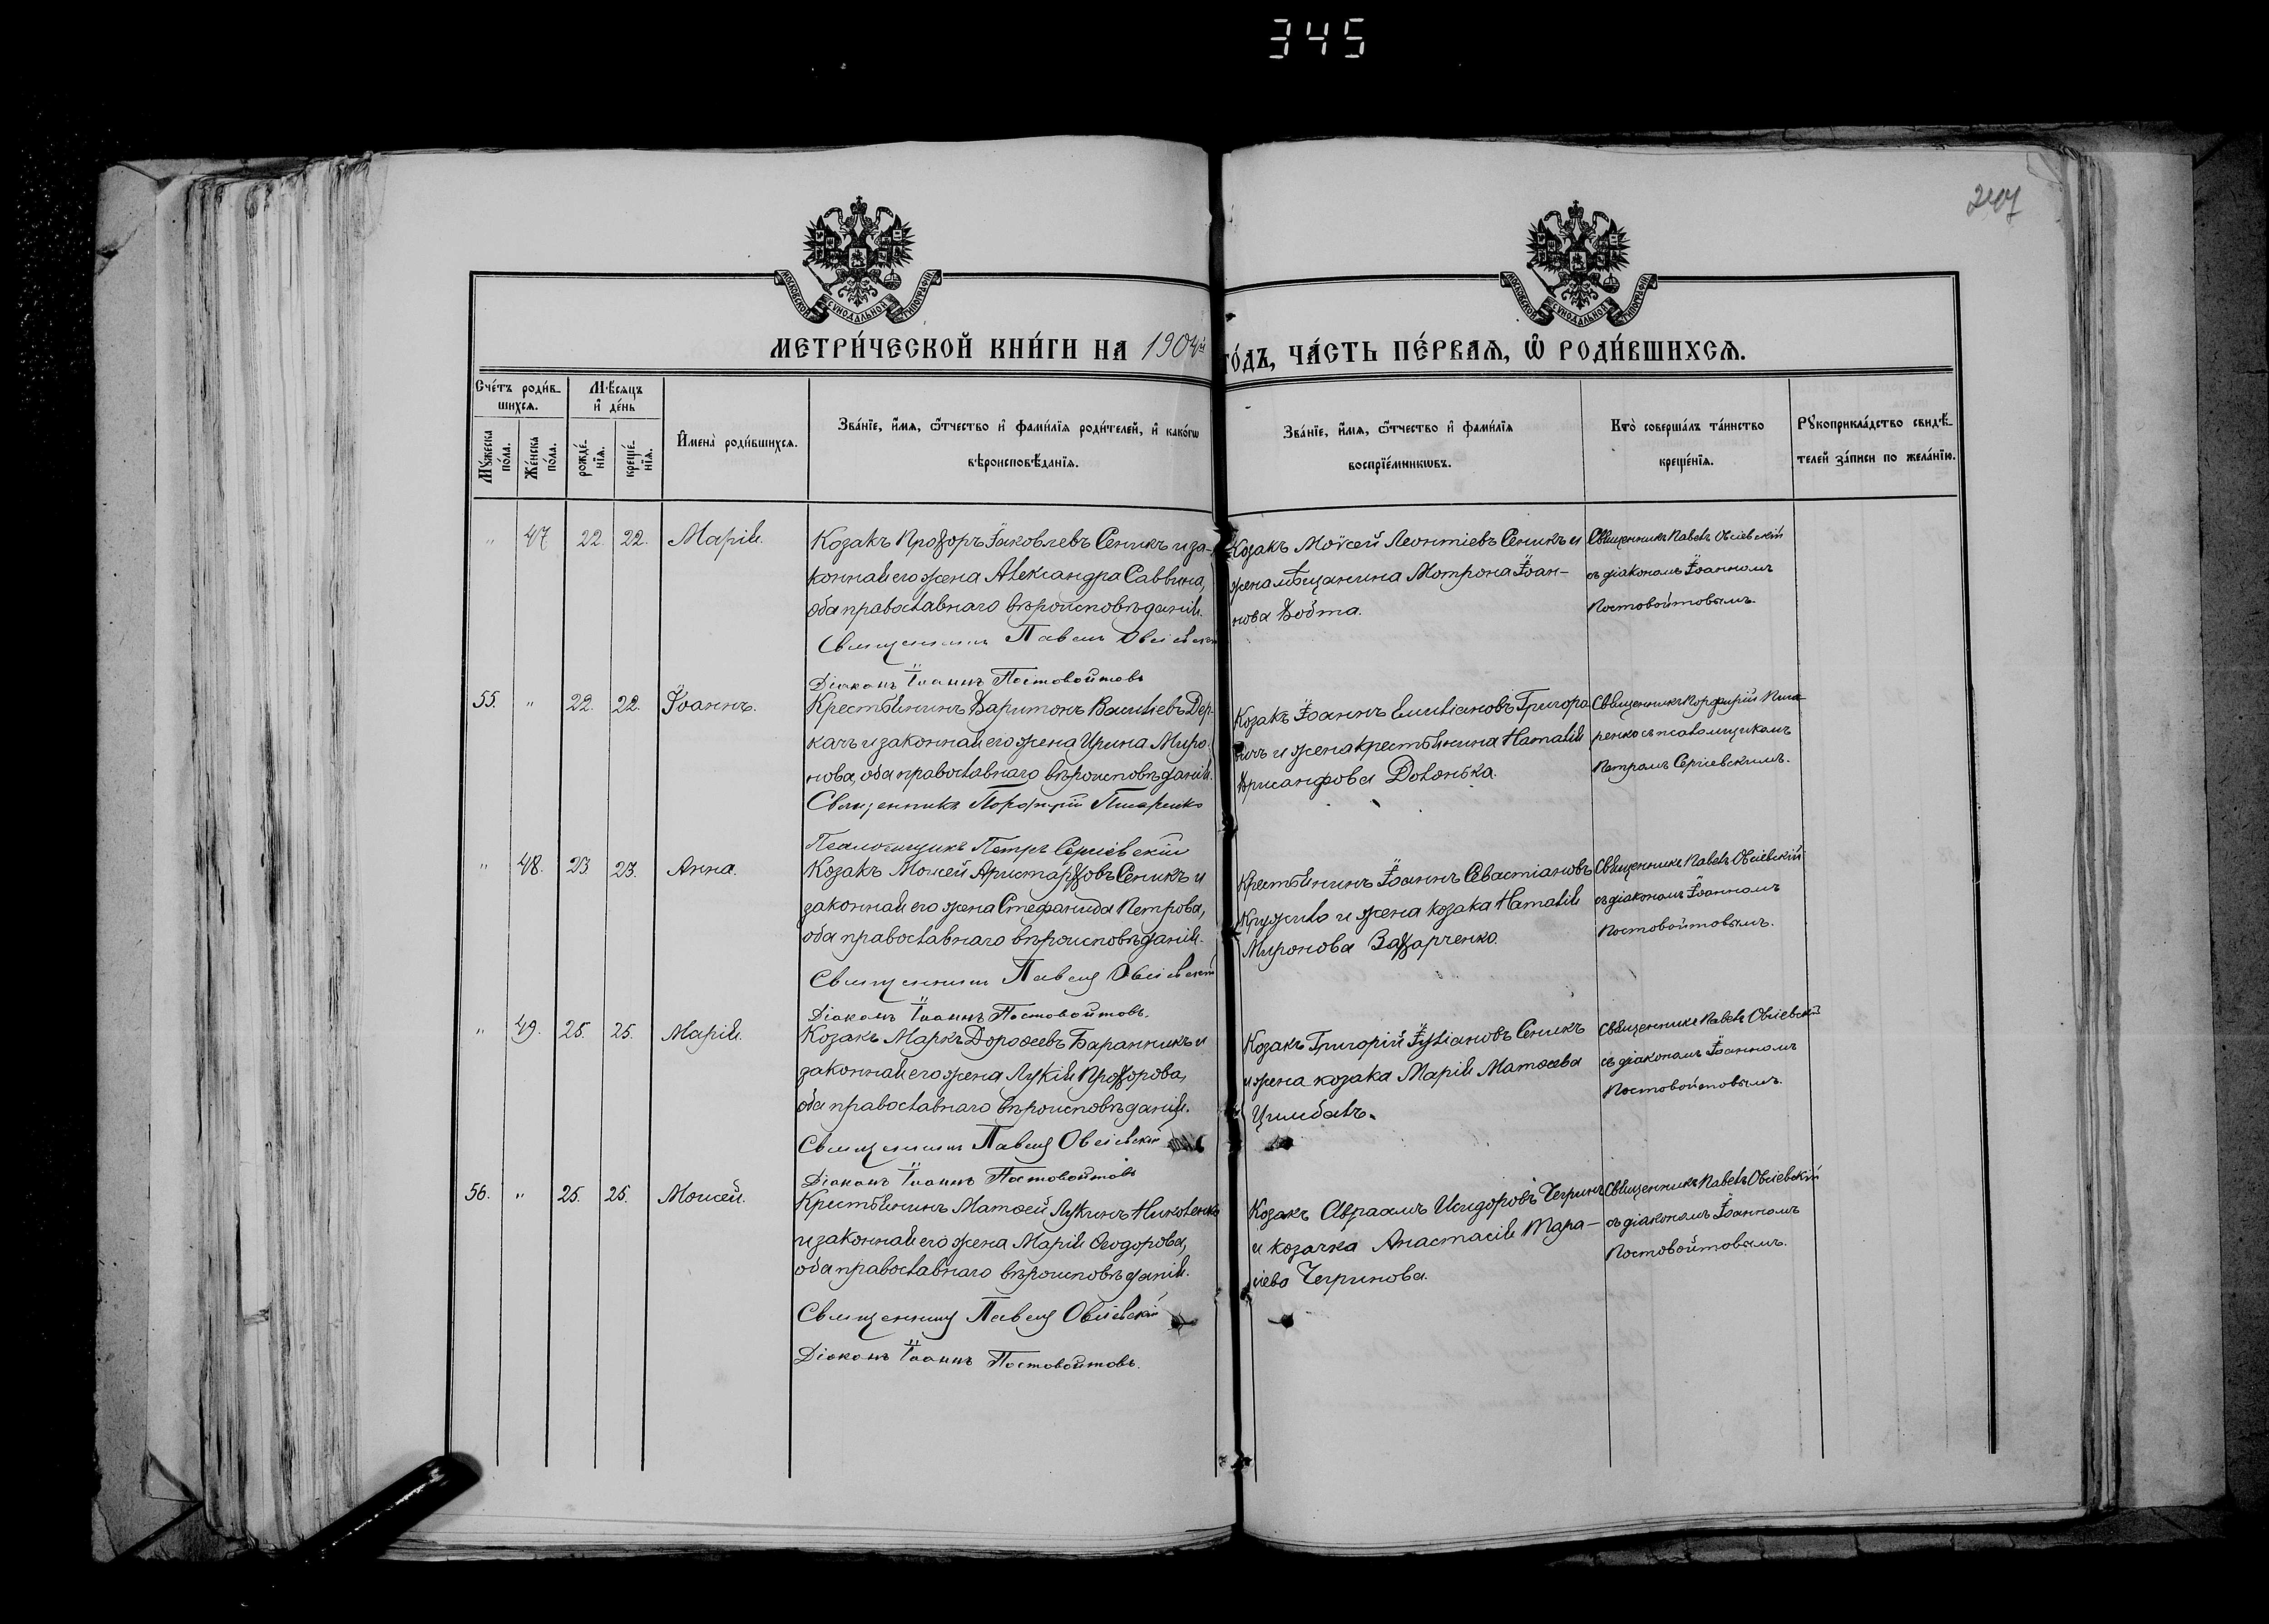 345
207
МОСКОВСКОЙ СѴНОДАЛЬНОЙ ТИПОГРАФІИ
МОСКОВСКОЙ СѴНОДАЛЬНОЙ ТИПОГРАФІИ
МЕТРИ́ЧЕСКОЙ КНИ́ГИ НА 1904й ГО́ДЪ, ЧА́СТЬ ПЕ́РВАѦ, Ѡ҆ РОДИ́ВШИХСѦ.
Сче́тъ роди́в-
шихсѧ.
Мꙋ́жеска по́ла.
Же́нска по́ла.
Мѣ́сѧцъ
и҆ де́нь
рожде́нїѧ.
креще́нїѧ.
И҆мена̀ роди́вшихсѧ.
Зва́нїе, и҆́мѧ, ѻ҆́тчество и҆ фами́лїѧ роди́телей, и҆ како́гѡ
вѣроисповѣ́данїѧ.
Зва́нїе, и҆́мѧ, ѻ҆́тчество и҆ фами́лїѧ
воспрїе́мникѡвъ.
Кто̀ соверша́лъ та́инство
креще́нїѧ.
Рꙋкоприкла́дство свидѣ́-
телей за́писи по жела́нїю.
" 47 22. 22. Марія.
Козакъ Прохоръ Іаковлевъ Сеникъ и за-
конная его жена Александра Саввина,
оба православнаго вѣроисповѣданія.
Священникъ Павелъ Овсіевскій
Діаконъ Іоаннъ Постовойтовъ
Козакъ Моѵсей Леонтіевъ Сеникъ и
жена мѣщанина Мотрона Іоан-
нова Койта.
Священникъ Павелъ Овсіевскій
съ діакономъ Іоанномъ
Постовойтовымъ.
55. " 22. 22. Іоаннъ.
Крестьянинъ Харитонъ Васильевъ Дер-
качъ и законная его жена Ирина Миро-
нова, оба православнаго вѣроисповѣданія.
Священникъ Порфирій Писаренко
Псаломщикъ Петръ Сергіевскій
Козакъ Іоаннъ Емиліановъ Григоро
вичъ и жена крестьянина Наталія
Хрисанфова Долонька.
Священникъ Порфирій Писа-
ренко съ псаломщикомъ
Петромъ Сергіевскимъ.
" 48. 23 23. Анна.
Козакъ Моисей Аристарховъ Сеникъ и
законная его жена Стефанида Петрова,
оба православнаго вѣроисповѣданія.
Священникъ Павелъ Овсіевскій
Діаконъ Іоаннъ Постовойтовъ.
Крестьянинъ Іоаннъ Севастіановъ
Кружило и жена козака Наталія
Миронова Захарченко.
Священникъ Павелъ Овсіевскій
съ діакономъ Іоанномъ
Постовойтовымъ.
" 49. 25. 25. Марія.
Козакъ Маркъ Дороѳеевъ Баранникъ и
законная его жена Лукія Прохорова,
оба православнаго вѣроисповѣданія.
Священникъ Павелъ Овсіевскій
Діаконъ Іоаннъ Постовойтовъ
Козакъ Григорій Іуліановъ Сеникъ
и жена козака Марія Матѳеева
Цимбалъ.
Священникъ Павелъ Овсіевскій
съ діакономъ Іоанномъ
Постовойтовымъ.
56. " 25. 25. Моисей.
Крестьянинъ Матѳей Лукинъ Николенко
и законная его жена Марія Ѳеодорова,
оба православнаго вѣроисповѣданія.
Священникъ Павелъ Овсіевскій
Діаконъ Іоаннъ Постовойтовъ.
Козакъ Авраамъ Исидоровъ Чегринъ
и козачка Анастасія Тара-
сіева Чегринова.
Священникъ Павелъ Овсіевскій
съ діакономъ Іоанномъ
Постовойтовымъ.